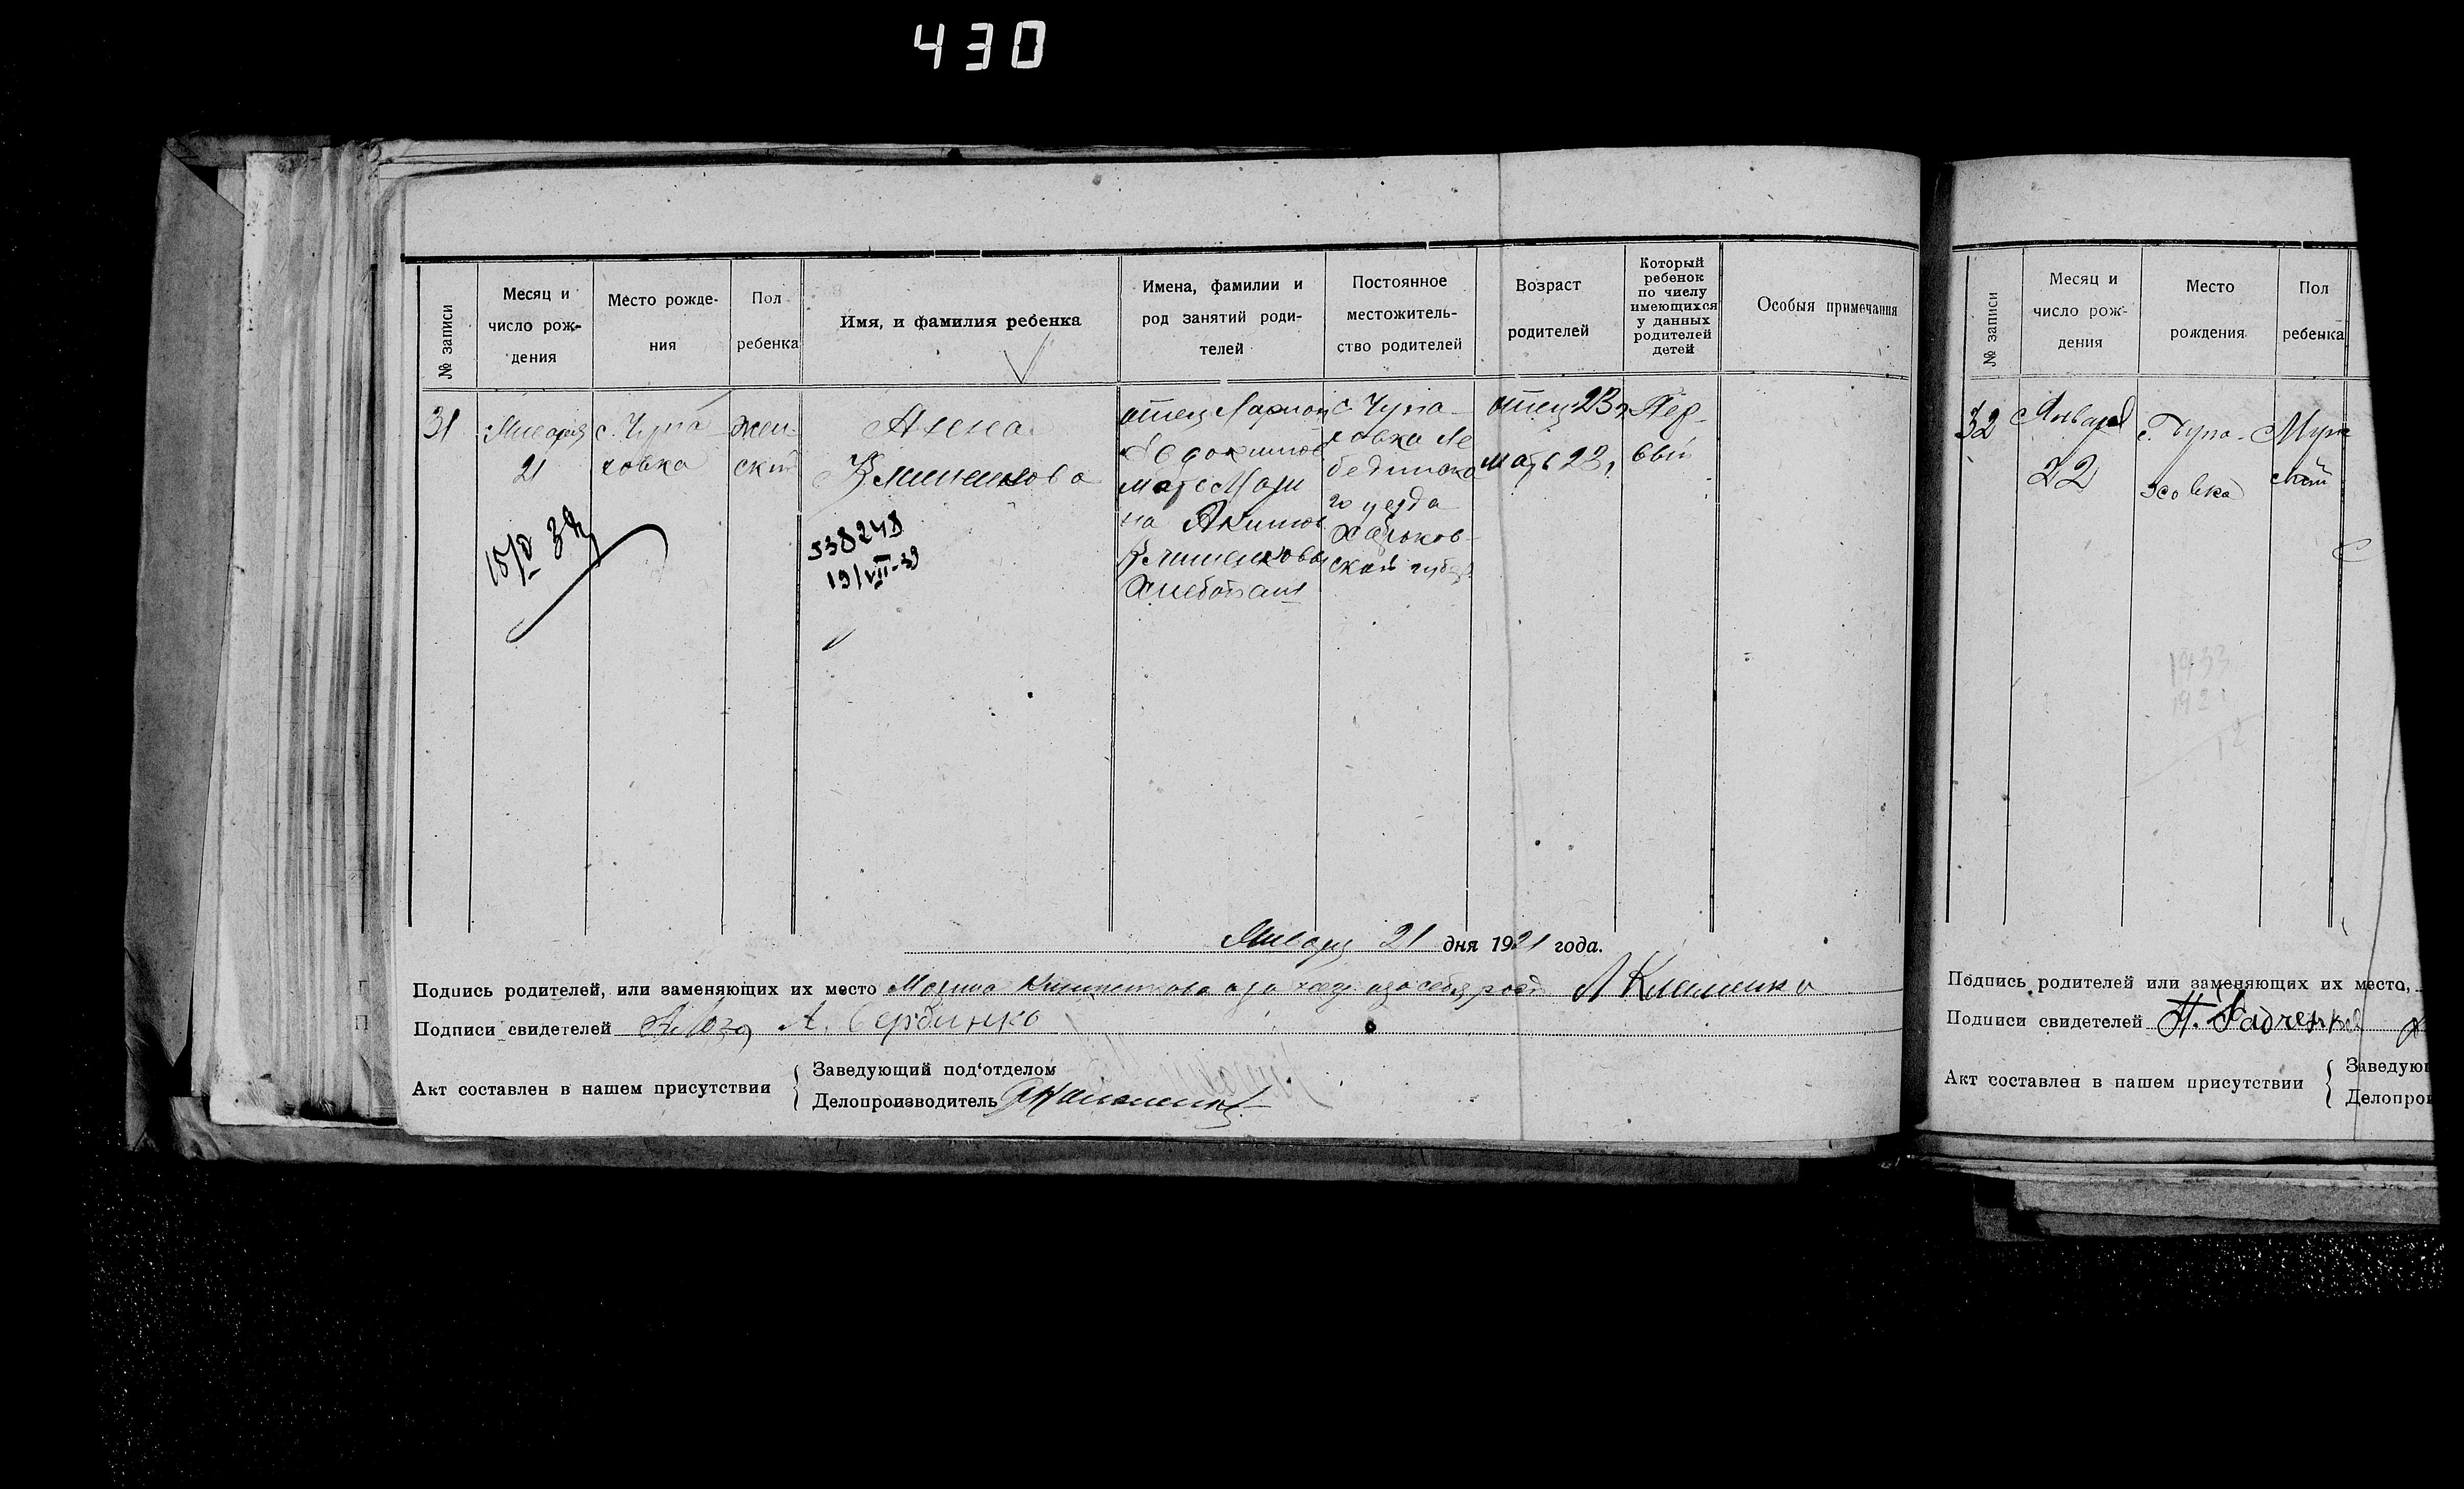 430
№ записи
Месяц и число рож-дения
Место рожде-ния
Пол ребенка
Имя, и фамилия ребенка
Имена, фамилии и род занятий роди-телей
Постоянное местожитель-ство родителей
Возраст родителей
Который ребенок по числу имеющихся у данных родителей детей
Особыя примечания
31
Января
21
с. Чупа
ховка
жен-
ский
Анна
Клименкова
538248
19/VII-39
отец Ларион
Евдокимов
мать Мари
на Акимов
Клименковы
Хлебопаш
с. Чупа-
ховка Ле
бединско
го уезда
Харьков-
ской губер
отец 23
мать 23
Пер-
вый
Января 21 дня 1921 года.
Подпись родителей, или заменяющих их место Марина Клименкова А Клименко
Подписи свидетелей А. Сербинко
Акт составлен в нашем присутствии
Заведующий под'отделом
Делопроизводитель
№ записи
Месяц и число рож-дения
Место рождения
Пол ребенка
32
Января
22
с. Чупа-
ховка
Муж
ской
1933
1921
12
Подпись родителей или заменяющих их место,
Подписи свидетелей Н. Радченко
Акт составлен в нашем присутствии
Заведую
Делопрои